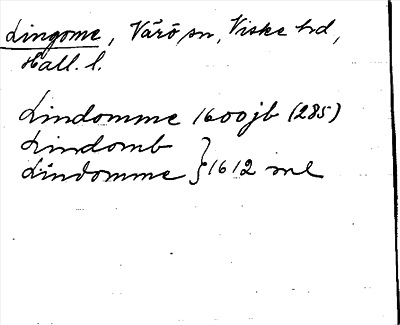 Lingome, Värö sn, Viske hd,
Hall. l.
Lindomme 1600 jb (285)
Lindomb
Lindomme } 1612 ml